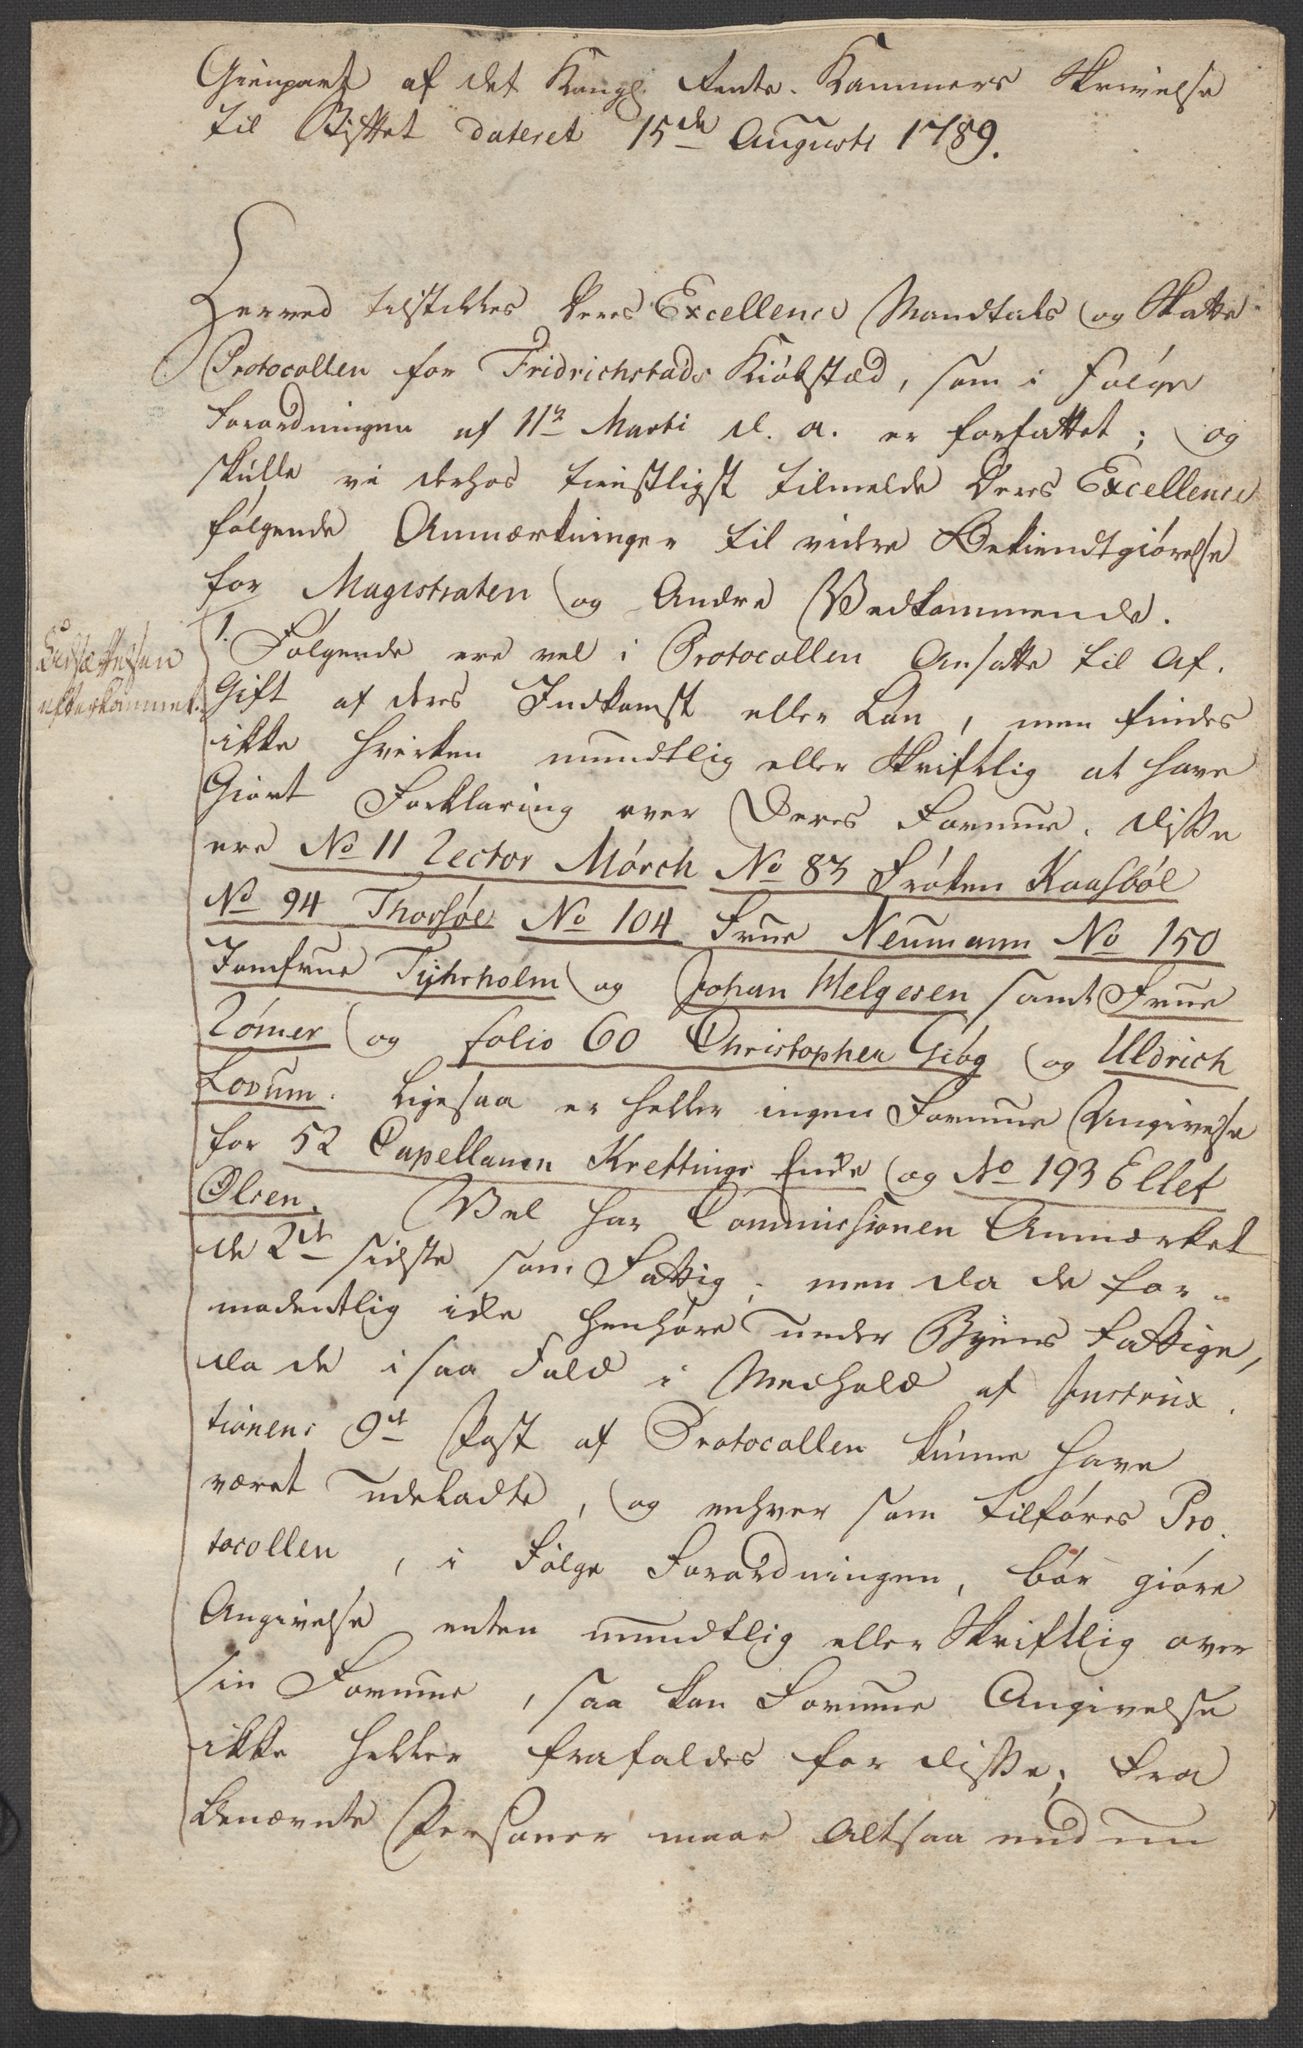 Gienpart af det Kongl. Rente-Kammers Skrivelse
til Stiftet dateret 15de Augusti 1789.
Herved tilstilles Deres Excellence Mandtals og Skatte
Protocollen for Fridrichstads Kiöbstæd, som i Fölge
Forordningen af 11te Marti d. a. er forfattet; og
skulle vi derhos tienstligst tilmelde Deres Excellence
følgende Anmærkninger til videre Bekiendtgiörelse
for Magistraten og Andre Vedkommende.
1. Følgende ere vel i Protocollen Ansatte til Af-
Gift af deres Indkomst eller Lön, men findes
ikke hverken mundtlig eller Skriftlig at have
Giort Forklaring over Deres Formue. Disse
ere No 11 Lector Mörch No 83 Fröken Kaasböl
No 94 Thorsöe No 104 Frue Neumann No 150
Jomfrue Tyhrholm og Johan Helgesen samt Frue
Römer og folio 60 Christopher Gibg og Uldrich
Lovum. Ligesaa er heller ingen Formue Angivelse
for 52 Capellanen Krefting Enke og No 193 Ellet
Olsen. Vel har Commissionen Anmærket
de 2de sidste som Fattig, men da de for-
modentlig icke henhøre under Byens Fattige,
da de i saa Fald i Medhold af Instrux-
tionens 9de Post af Protocollen kunne have
været udeladte, og enhver som tilföres Pro-
tocollen, i Fölge Forordningen, bör giöre
Angivelse enten mundtlig eller Skriftlig over
sin Formue, saa kan Formue Angivelse
ikke heller frafaldes for disse; Fra
benævnte Personer maae altsaa end nu
efterkommet.